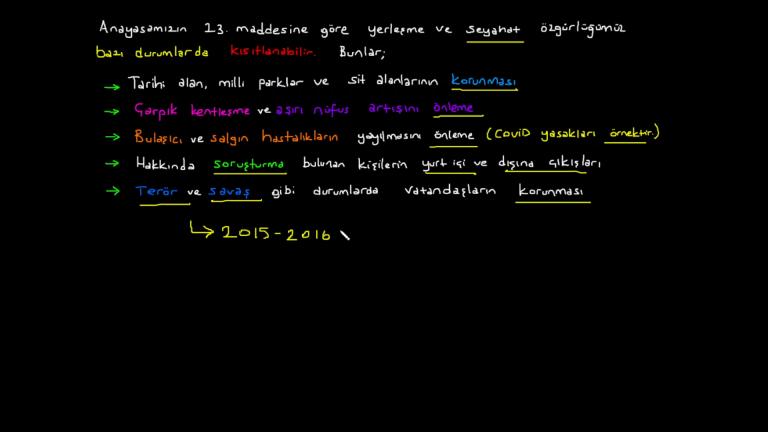 Anayasamızın 13. maddesine göre yerleşme ve seyahat özgürlüğümüz
bazı durumlarda kısıtlanabilir. Bunlar;
→ Tarihi alan, milli parklar ve sit alanlarının korunması
→ Çarpık kentleşme ve aşırı nüfus artışını önleme
→ Bulaşıcı ve salgın hastalıkların yayılmasını önleme (Covid yasakları örnektir.)
→ Hakkında soruşturma bulunan kişilerin yurt içi ve dışına çıkışları
→ Terör ve savaş gibi durumlarda vatandaşların korunması
↳ 2015-2016